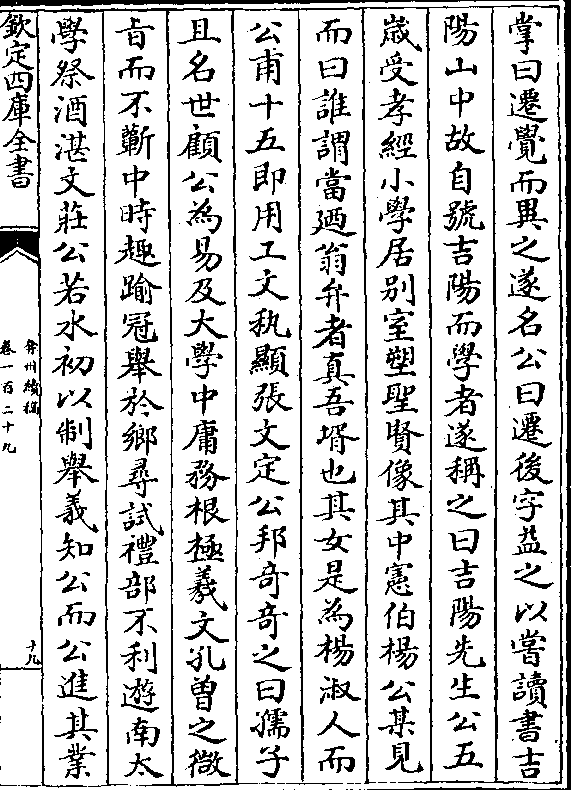 掌曰遷覺而異之遂名公曰遷後字益之以嘗讀書吉
陽山中故自號吉陽而學者遂稱之曰吉陽先生公五
嵗受孝經小學居别室塑聖賢像其中憲伯楊公某見
而曰誰謂當廼翁弁者真吾壻也其女是為楊淑人而
公甫十五即用工文埶顯張文定公邦奇奇之曰孺子
且名世顧公為易及大學中庸務根極羲文孔曾之微
㫖而不蘄中時趣踰冠舉於鄉尋試禮部不利遊南太
學祭酒湛文莊公若水初以制舉義知公而公進其業
欽定四庫全書
弇州續稿
卷一百二十九
十九